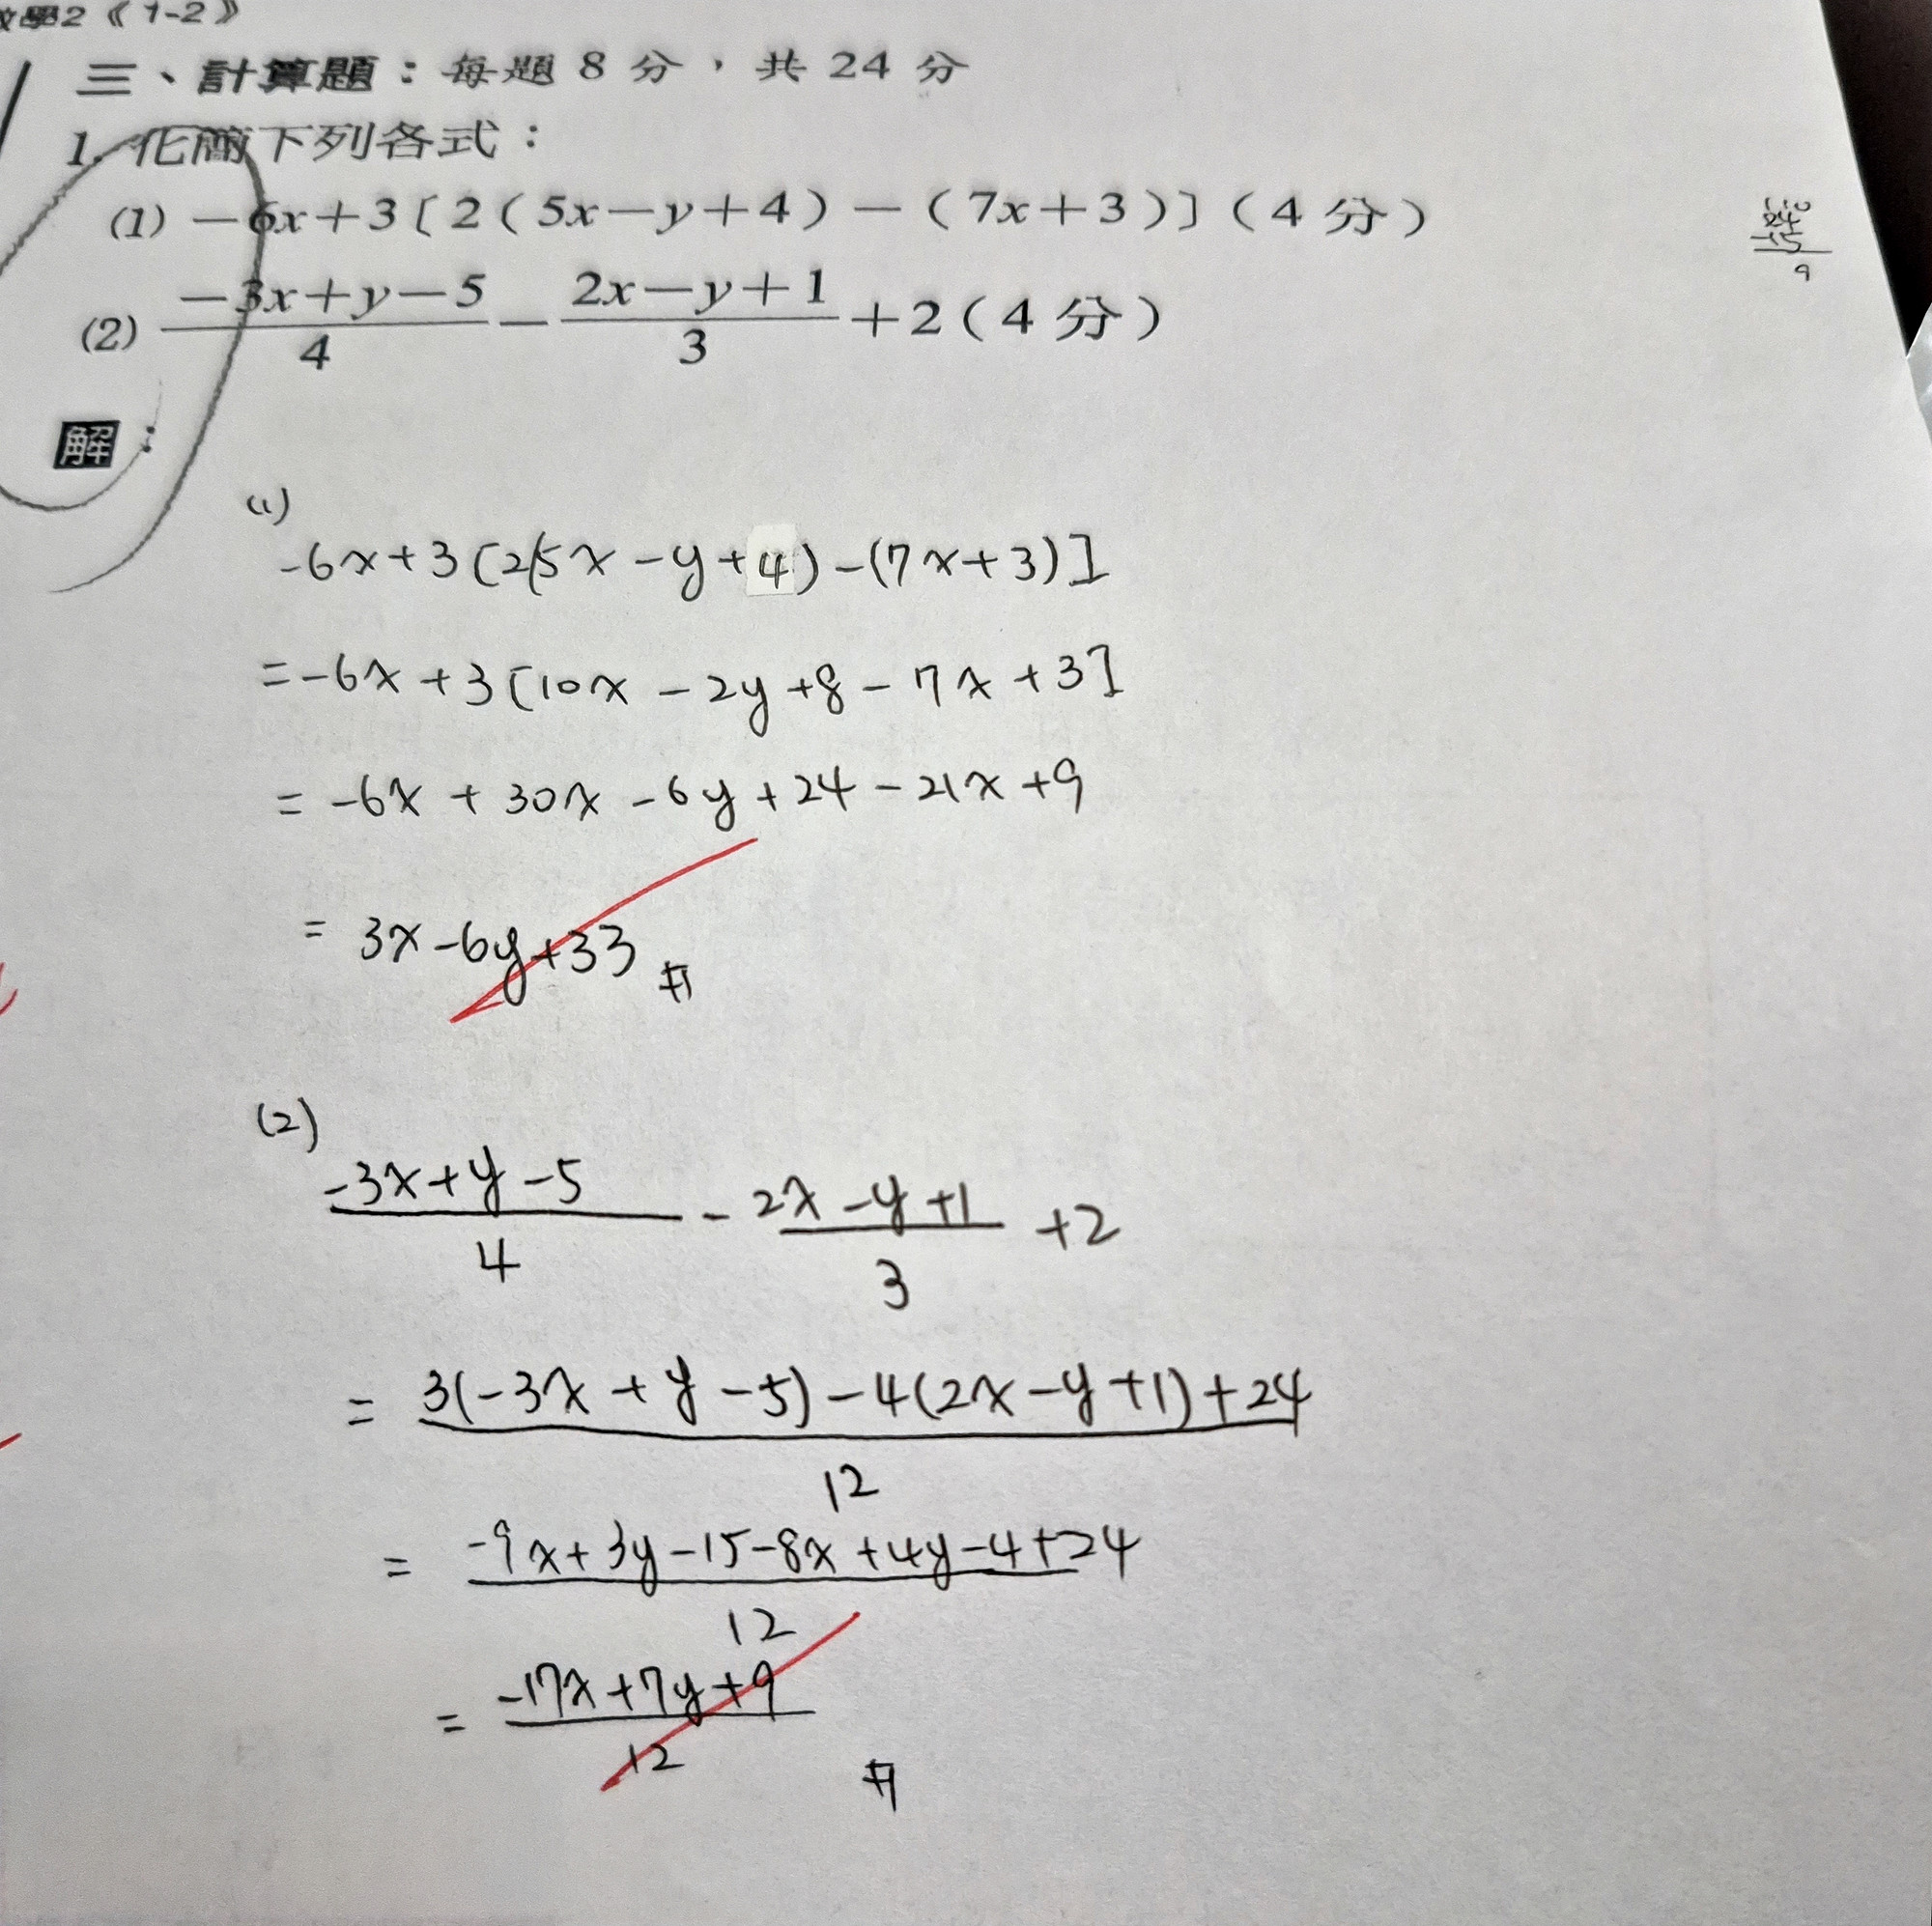 數學2《1-2》
三、計算題：每題 8 分，共 24 分
1. 化簡下列各式：
(1) －6x＋3［2（5x－y＋4）－（7x＋3）］（4 分）
(2) \frac{－3x＋y－5}{4}－\frac{2x－y＋1}{3}＋2（4 分）
24
-15
9
解：
(1)
-6x+3[2(5x-y+4)-(7x+3)]
=-6x+3[10x-2y+8-7x+3]
=-6x+30x-6y+24-21x+9
=3x-6y+33
(2)
\frac{-3x+y-5}{4}-\frac{2x-y+1}{3}+2
=\frac{3(-3x+y-5)-4(2x-y+1)+24}{12}
=\frac{-9x+3y-15-8x+4y-4+24}{12}
=\frac{-17x+7y+9}{12}